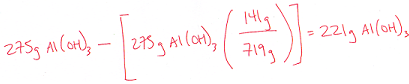 275g Al(OH)₃ − [275g Al(OH)₃ (141g / 719g)] = 221g Al(OH)₃